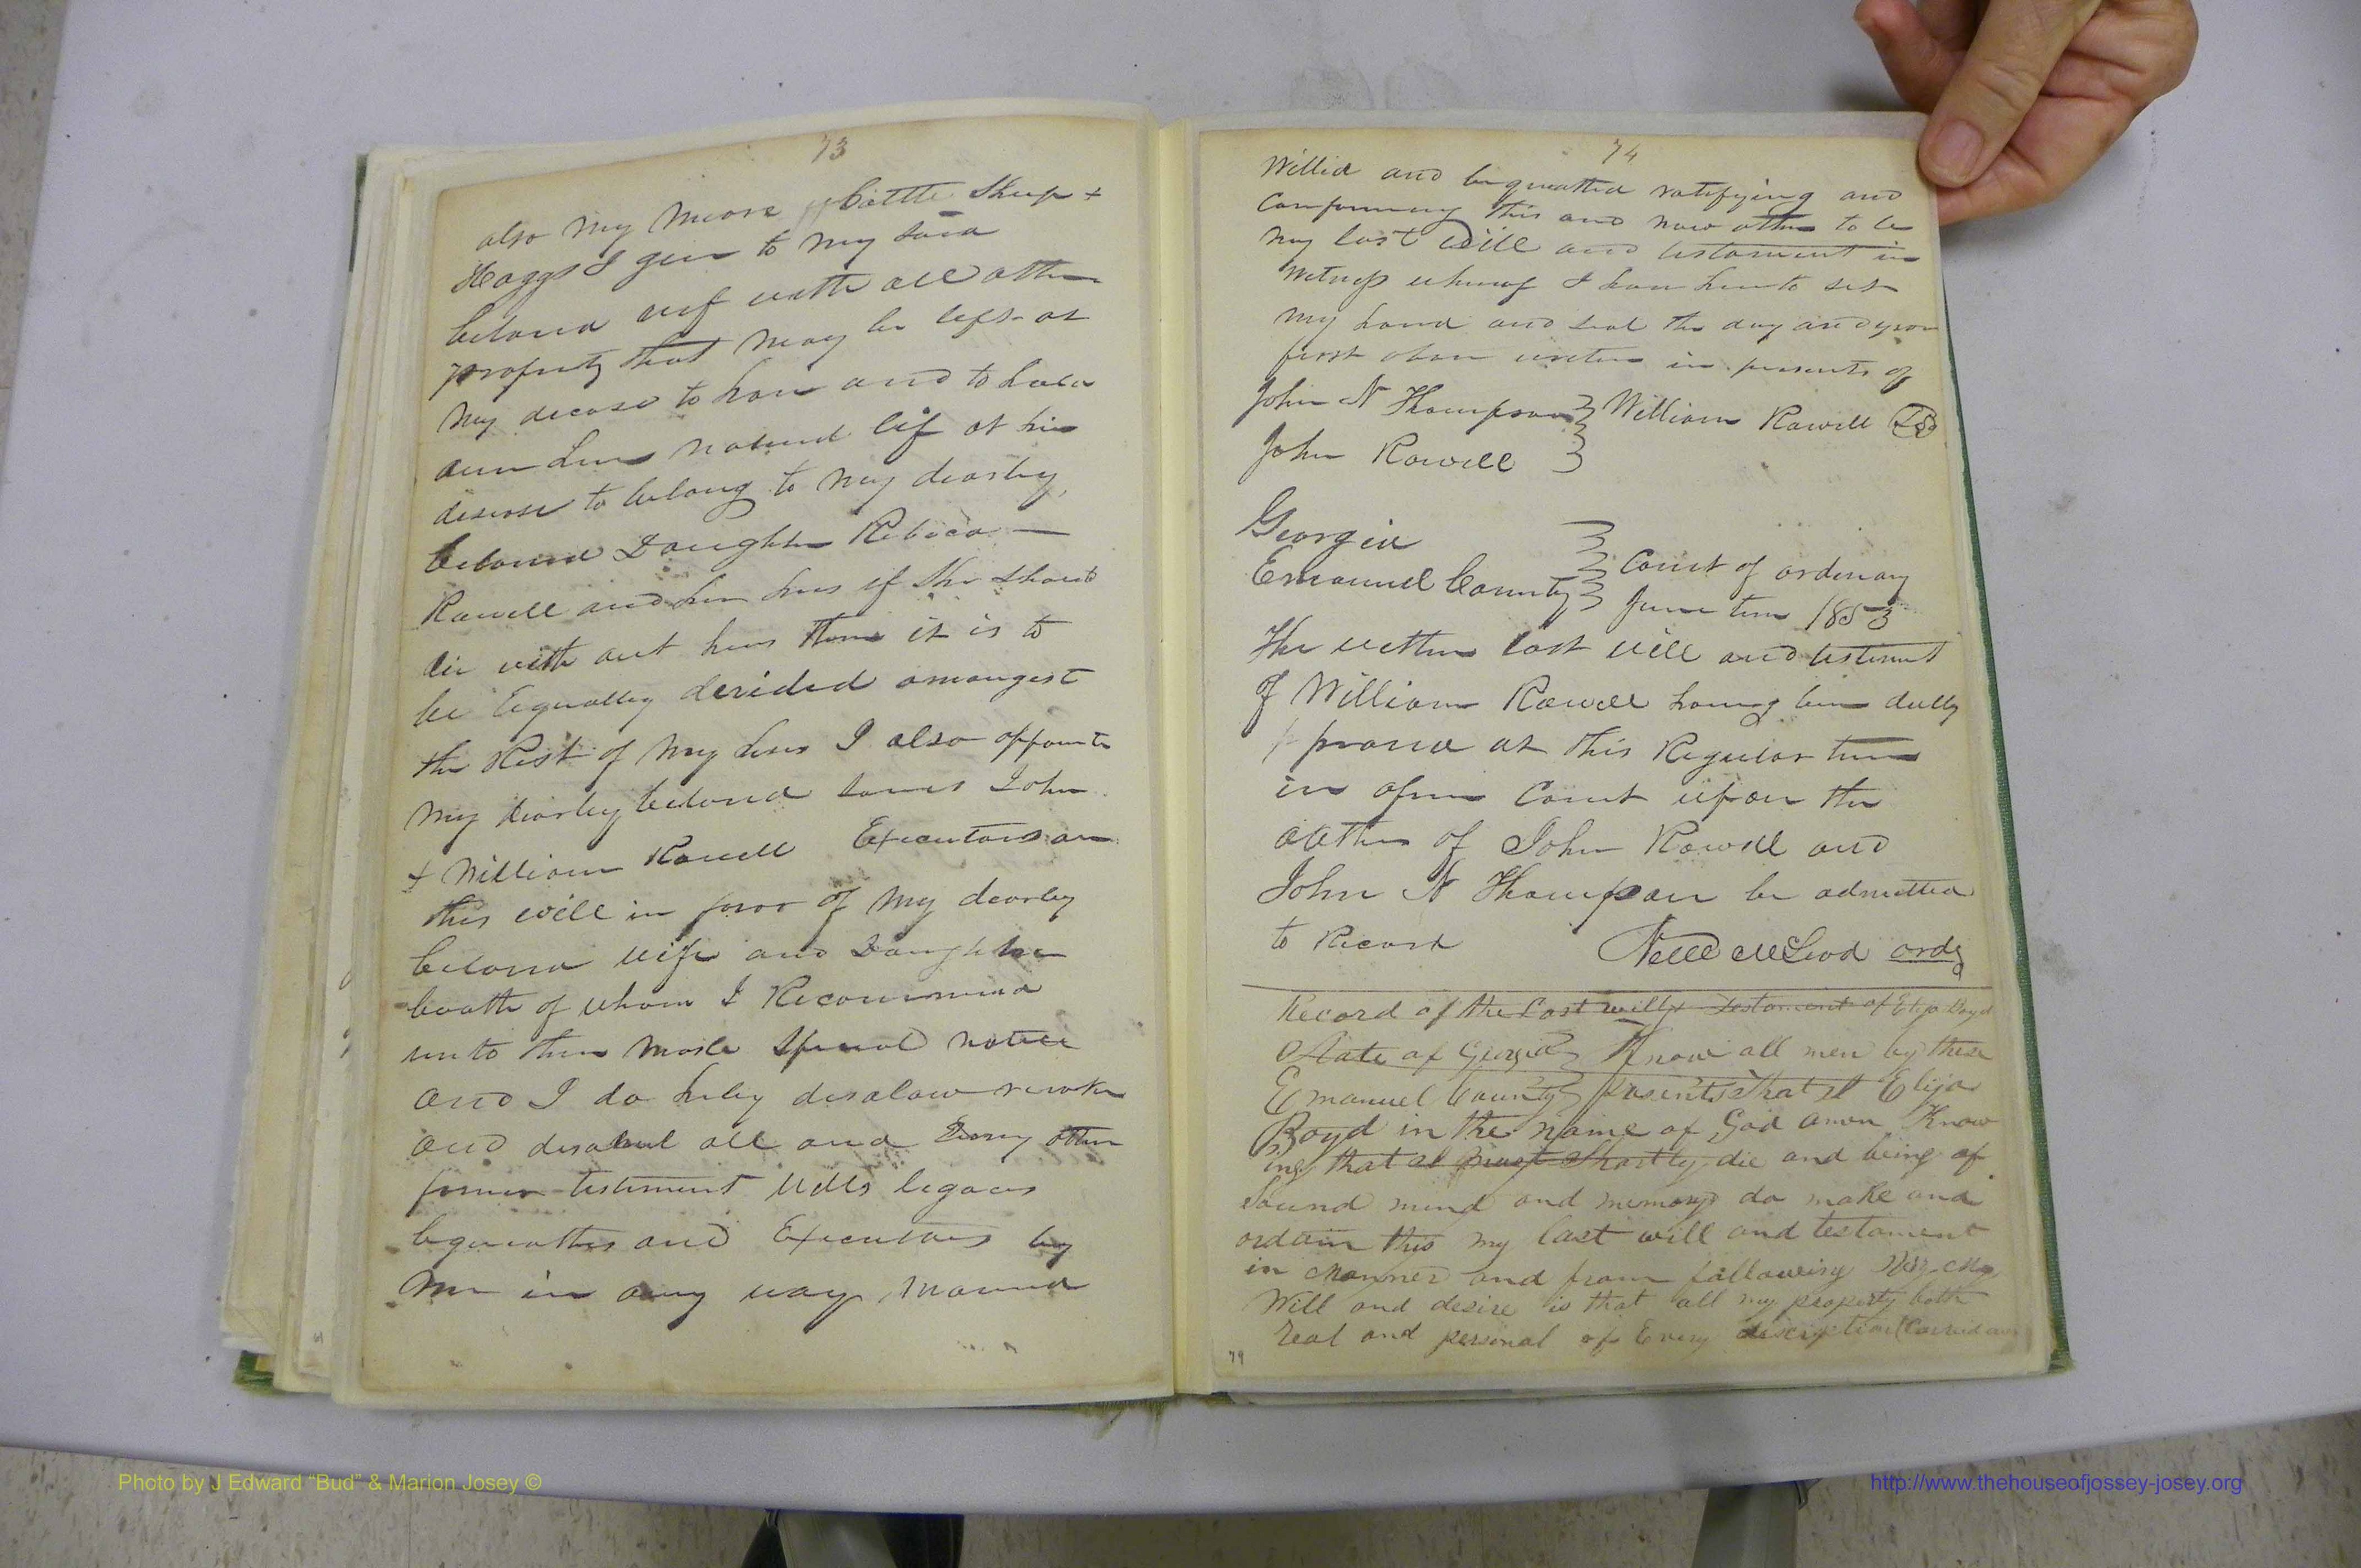 73
also my meare cattle Sheep +
Hoggs I give to my said
beloved wif with all other
property that may be left at
my decase to have and to hold
durin hur natural lif at hir
desease to belong to my dearley
beloved Daughter Rebeca
Rowell and her hirs if she should
die with out hirs then it is to
be Equalley devided amongest
the Rest of my hirs I also appoint
my dearley beloved sones John
+ William Rowell Executors on
this will in favor of my dearley
beloved wife and Daughter
booth of whom I Recommend
unto them made special notice
and I do hirby disalow revoke
and disalul all and Every other
former testiment Wills legaces
bequeathes and Executors by
me in any way named
74
Willed and bequeatted ratifying and
Confirming this and now other to be
my last will and testament in
Witness whereof I have hereto set
my hand and seal the day and year
first above writen in presents of
John N Thompson William Rowell LS
John Rowell
Georgia
Emanuel County Court of ordinary
June term 1853
The within last will and testiment
of William Rowell having been dully
proved at this Regular term
in open Court upon the
oathes of John Rowell and
John N Thompson be admitted
to Record Neill McLeod ordy
Record of the Last will + Testament of Elija Boyd
State of Georgia Know all men by these
Emanuel County presents that I Elija
Boyd in the name of God amen Know
ing that I must Shortly die and being of
Sound mind and memory do make and
ordain this my last will and testament
in manner and from following Viz. My
Will and desire is that all my property both
real and personal of Every discription (Carried over
79
Photo by J Edward “Bud” & Marion Josey ©
http://www.thehouseofjossey-josey.org